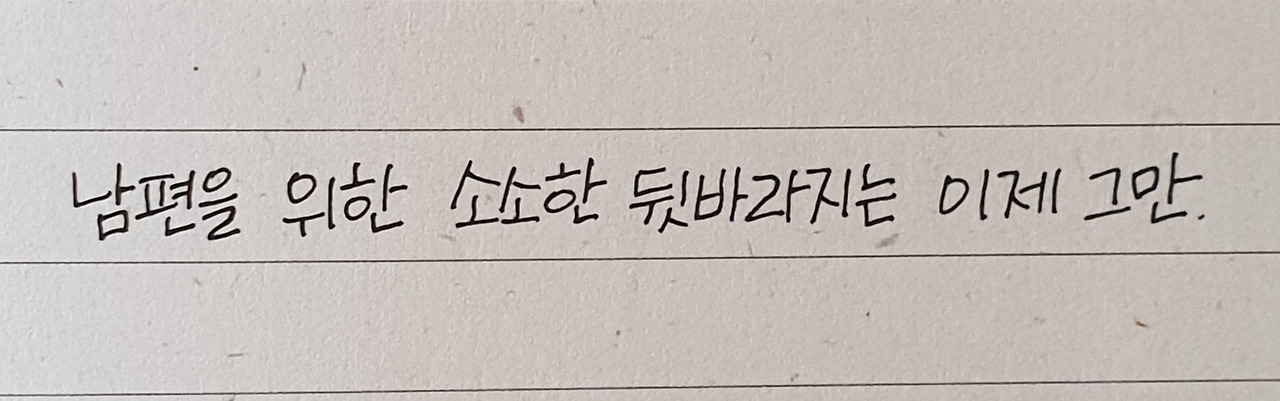 남편을 위한 소소한 뒷바라지는 이제 그만.